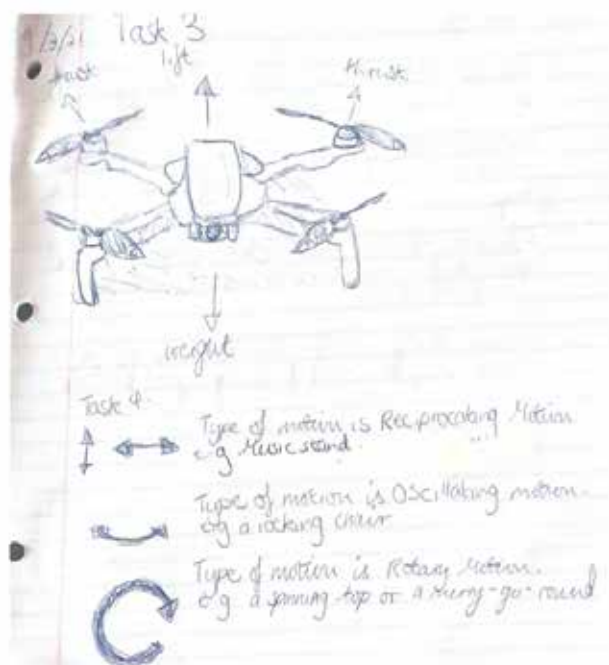 Task 3
lift
thrust
weight
Task 4
Type of motion is Reciprocating Motion
e.g Music stand.
Type of motion is Oscillating motion.
e.g a rocking chair
Type of motion is Rotary Motion.
e.g a spinning top or a merry-go-round